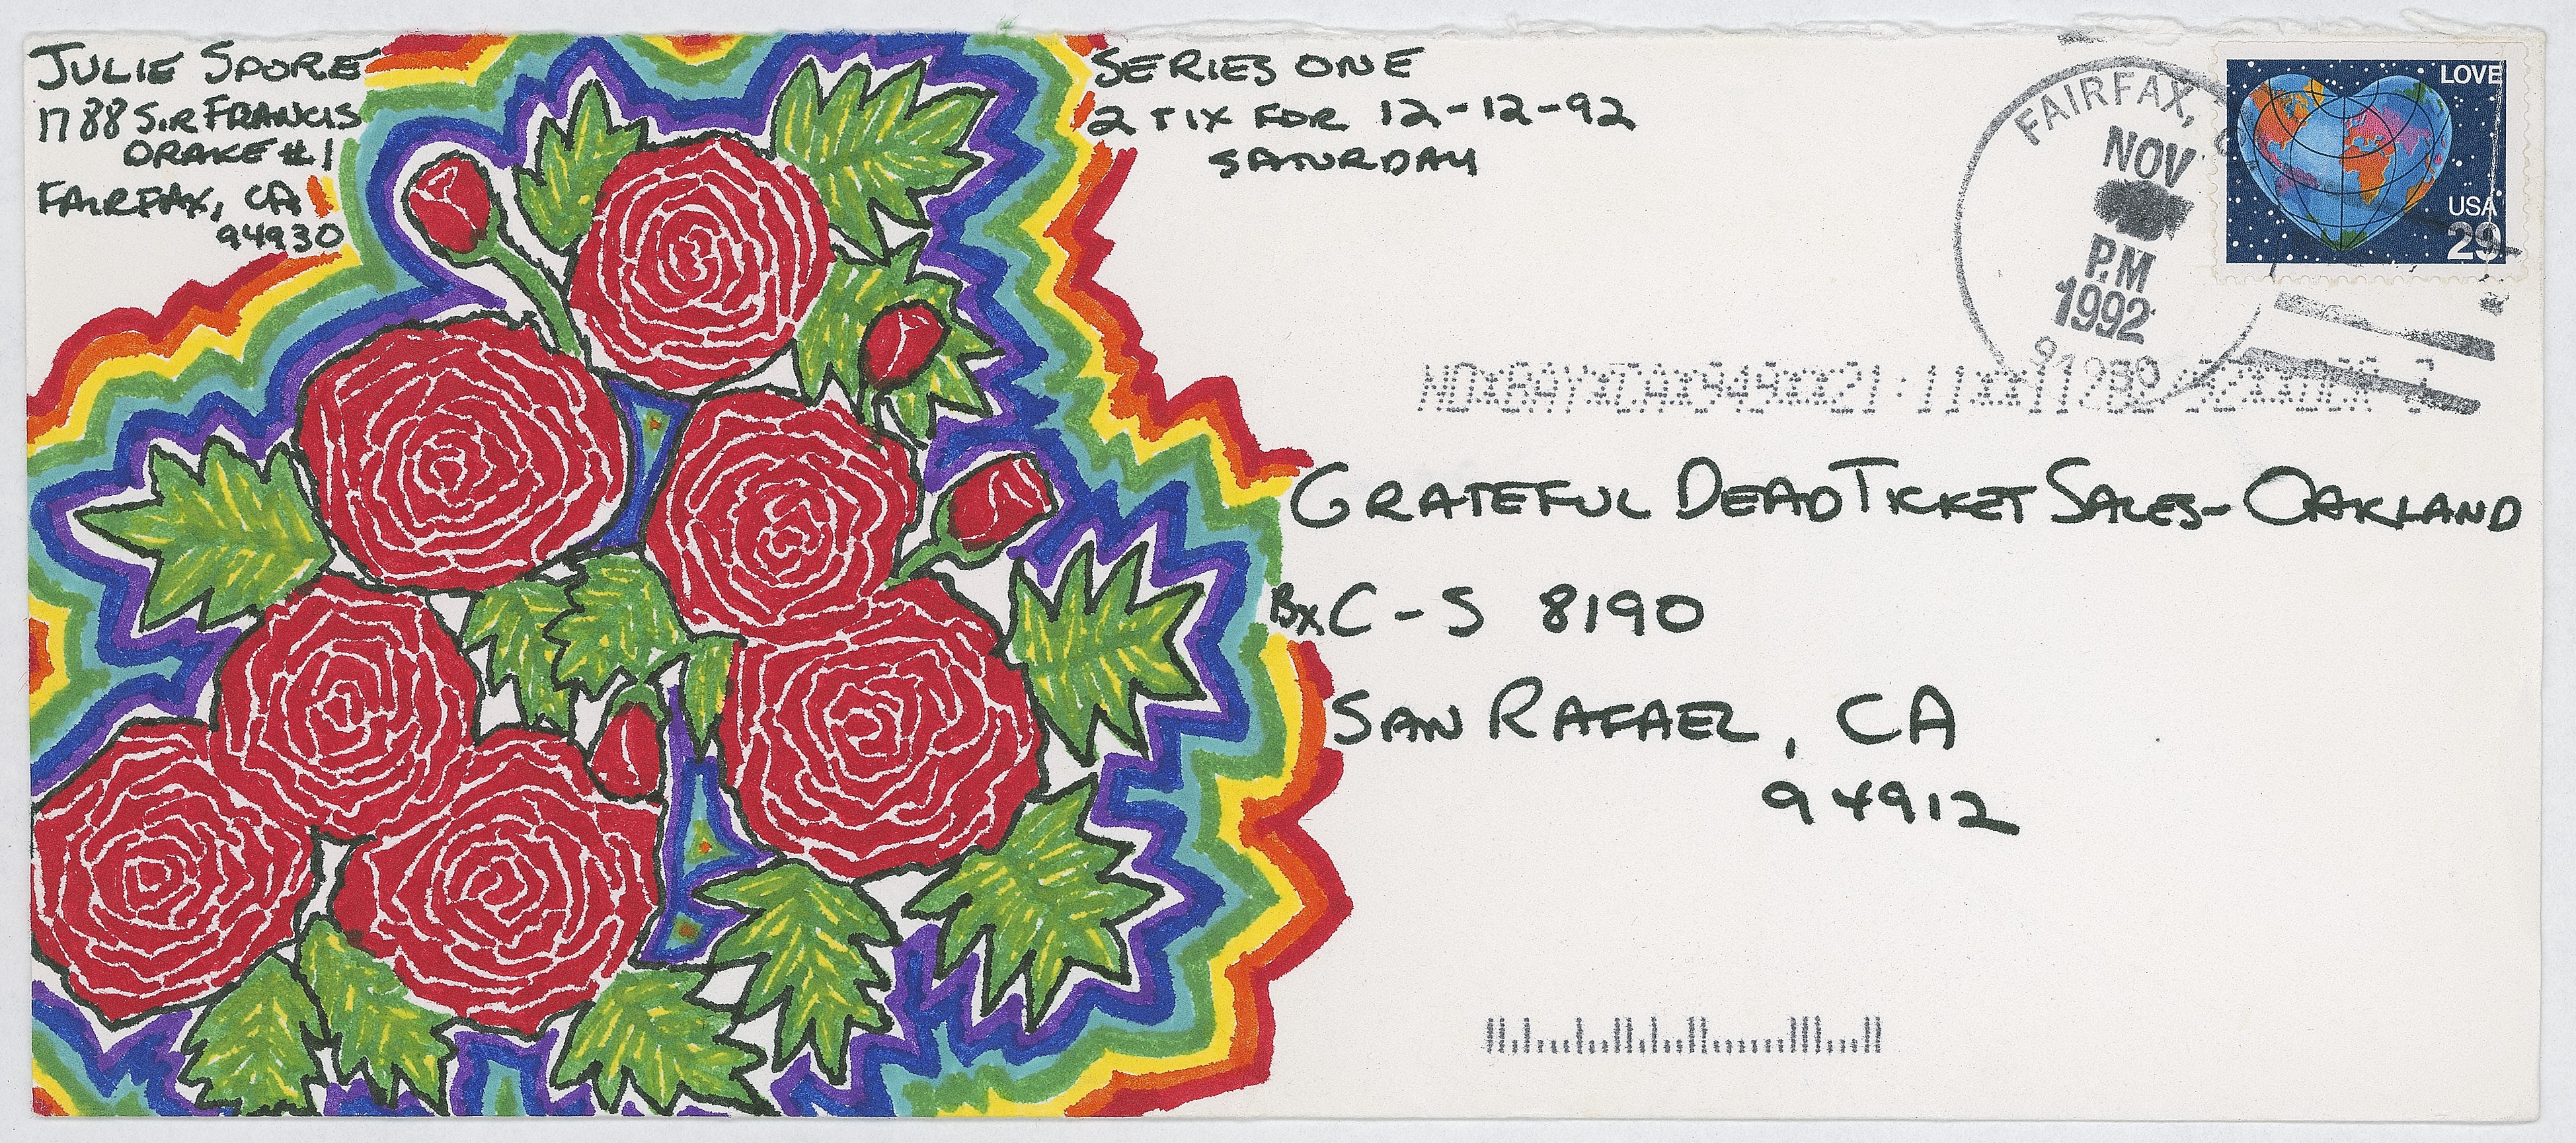 JULIE SPORE
1788 SIR FRANCIS
DRAKE #1
FAIRFAX, CA
94930
SERIES ONE
2 TIX FOR 12-12-92
SATURDAY
FAIRFAX,
NOV
PM
1992
LOVE
USA
29
GRATEFUL DEAD TICKET SALES - OAKLAND
BX C-S 8190
SAN RAFAEL, CA
94912